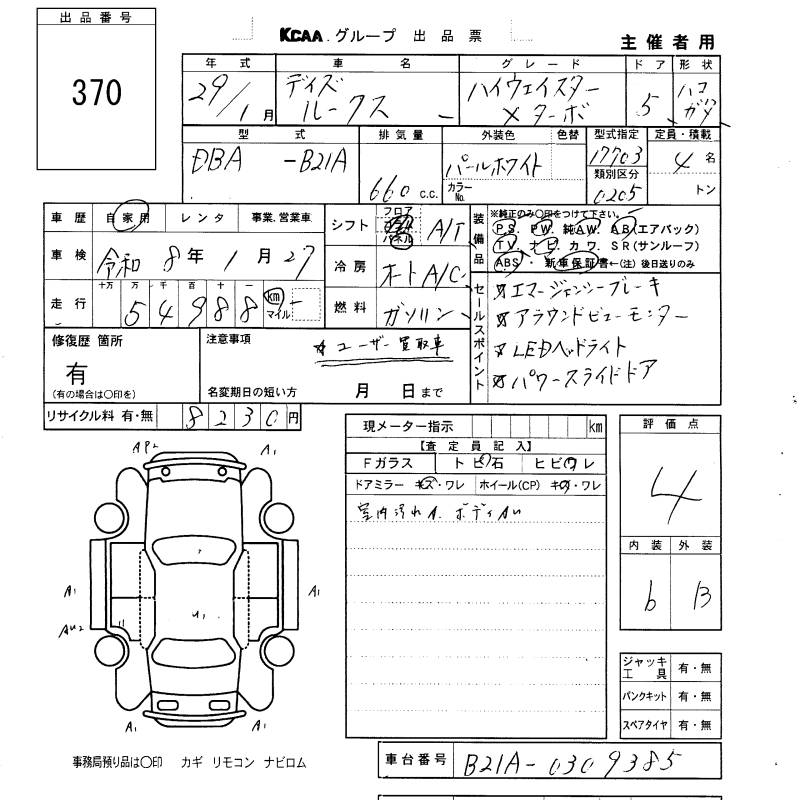 出品番号
370
KCAA グループ 出品票
主催者用
年式 車名 グレード ドア 形状
29/1月 デイズルークス ハイウェイスターXターボ 5 ハコ
型式 排気量 外装色 色替 型式指定 定員・積載
DBA -B21A 660 c.c. パールホワイト カラーNo. 17703 4名
類別区分
0205 トン
車歴 自家用 レンタ 事業.営業車
シフト フロア コラム パネル A/T
装備品 ※純正のみ〇印をつけて下さい。
PS. PW. 純AW. AB(エアバック)
TV. ナビ. カワ. SR(サンルーフ)
ABS・新車保証書←(注)後日送りのみ
車検 令和 8年 1月 27
冷房 オートA/C
走行 十万 万 千 百 十 一 54988 km マイル
燃料 ガソリン
セールスポイント
☆エマージェンシーブレーキ
☆アラウンドビューモニター
☆LEDヘッドライト
☆パワースライドドア
修復歴 箇所
有
(有の場合は〇印を)
注意事項
☆ユーザー買取車
名変期日の短い方 月 日まで
リサイクル料 有・無 8230円
現メーター指示 km
【査定員記入】
Fガラス トビ石 ヒビワレ
ドアミラー キズ・ワレ ホイール(CP) キズ・ワレ
室内汚れA. ボディAU
評価点
4
内装 外装
b B
AP2 A1
A1 U1 A1
AU2
A1 A1
ジャッキ工具 有・無
パンクキット 有・無
スペアタイヤ 有・無
事務局預り品は〇印 カギ リモコン ナビロム
車台番号 B21A-0309385